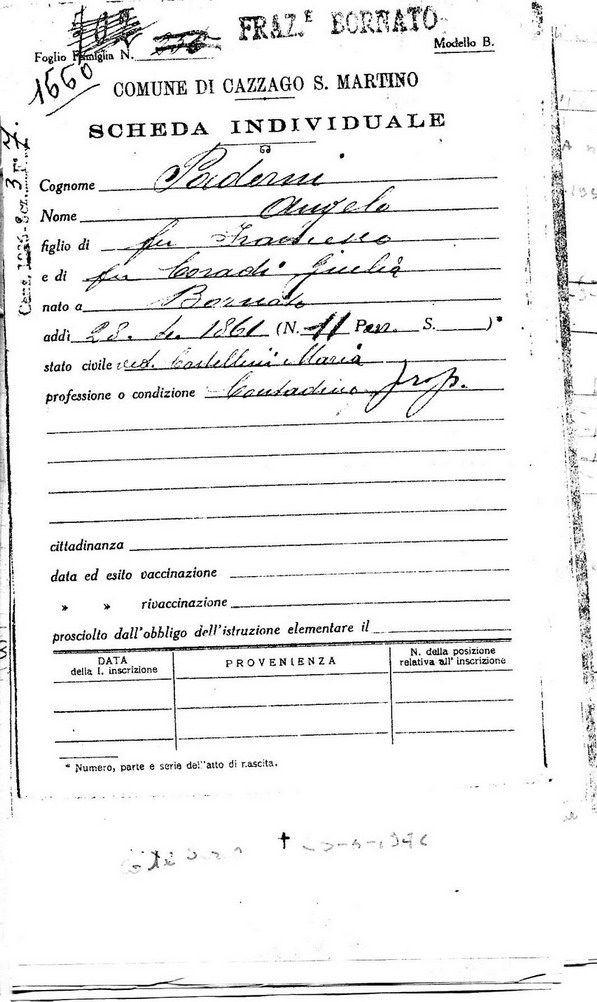 FRAZ.E BORNATO
Foglio Famiglia N. Modello B.
1660
COMUNE DI CAZZAGO S. MARTINO
SCHEDA INDIVIDUALE
Cognome Paderni
Nome Angelo
figlio di fu Francesco
e di fu Coradi Giulia
nato a Bornato
addì 28. 4. 1861 (N. 11 Par. S. )*
stato civile Castellini Maria
professione o condizione Contadino prop.
cittadinanza
data ed esito vaccinazione
» » rivaccinazione
prosciolto dall'obbligo dell'istruzione elementare il
DATA della I. inscrizione
PROVENIENZA
N. della posizione relativa all'inscrizione
* Numero, parte e serie dell'atto di nascita.
†